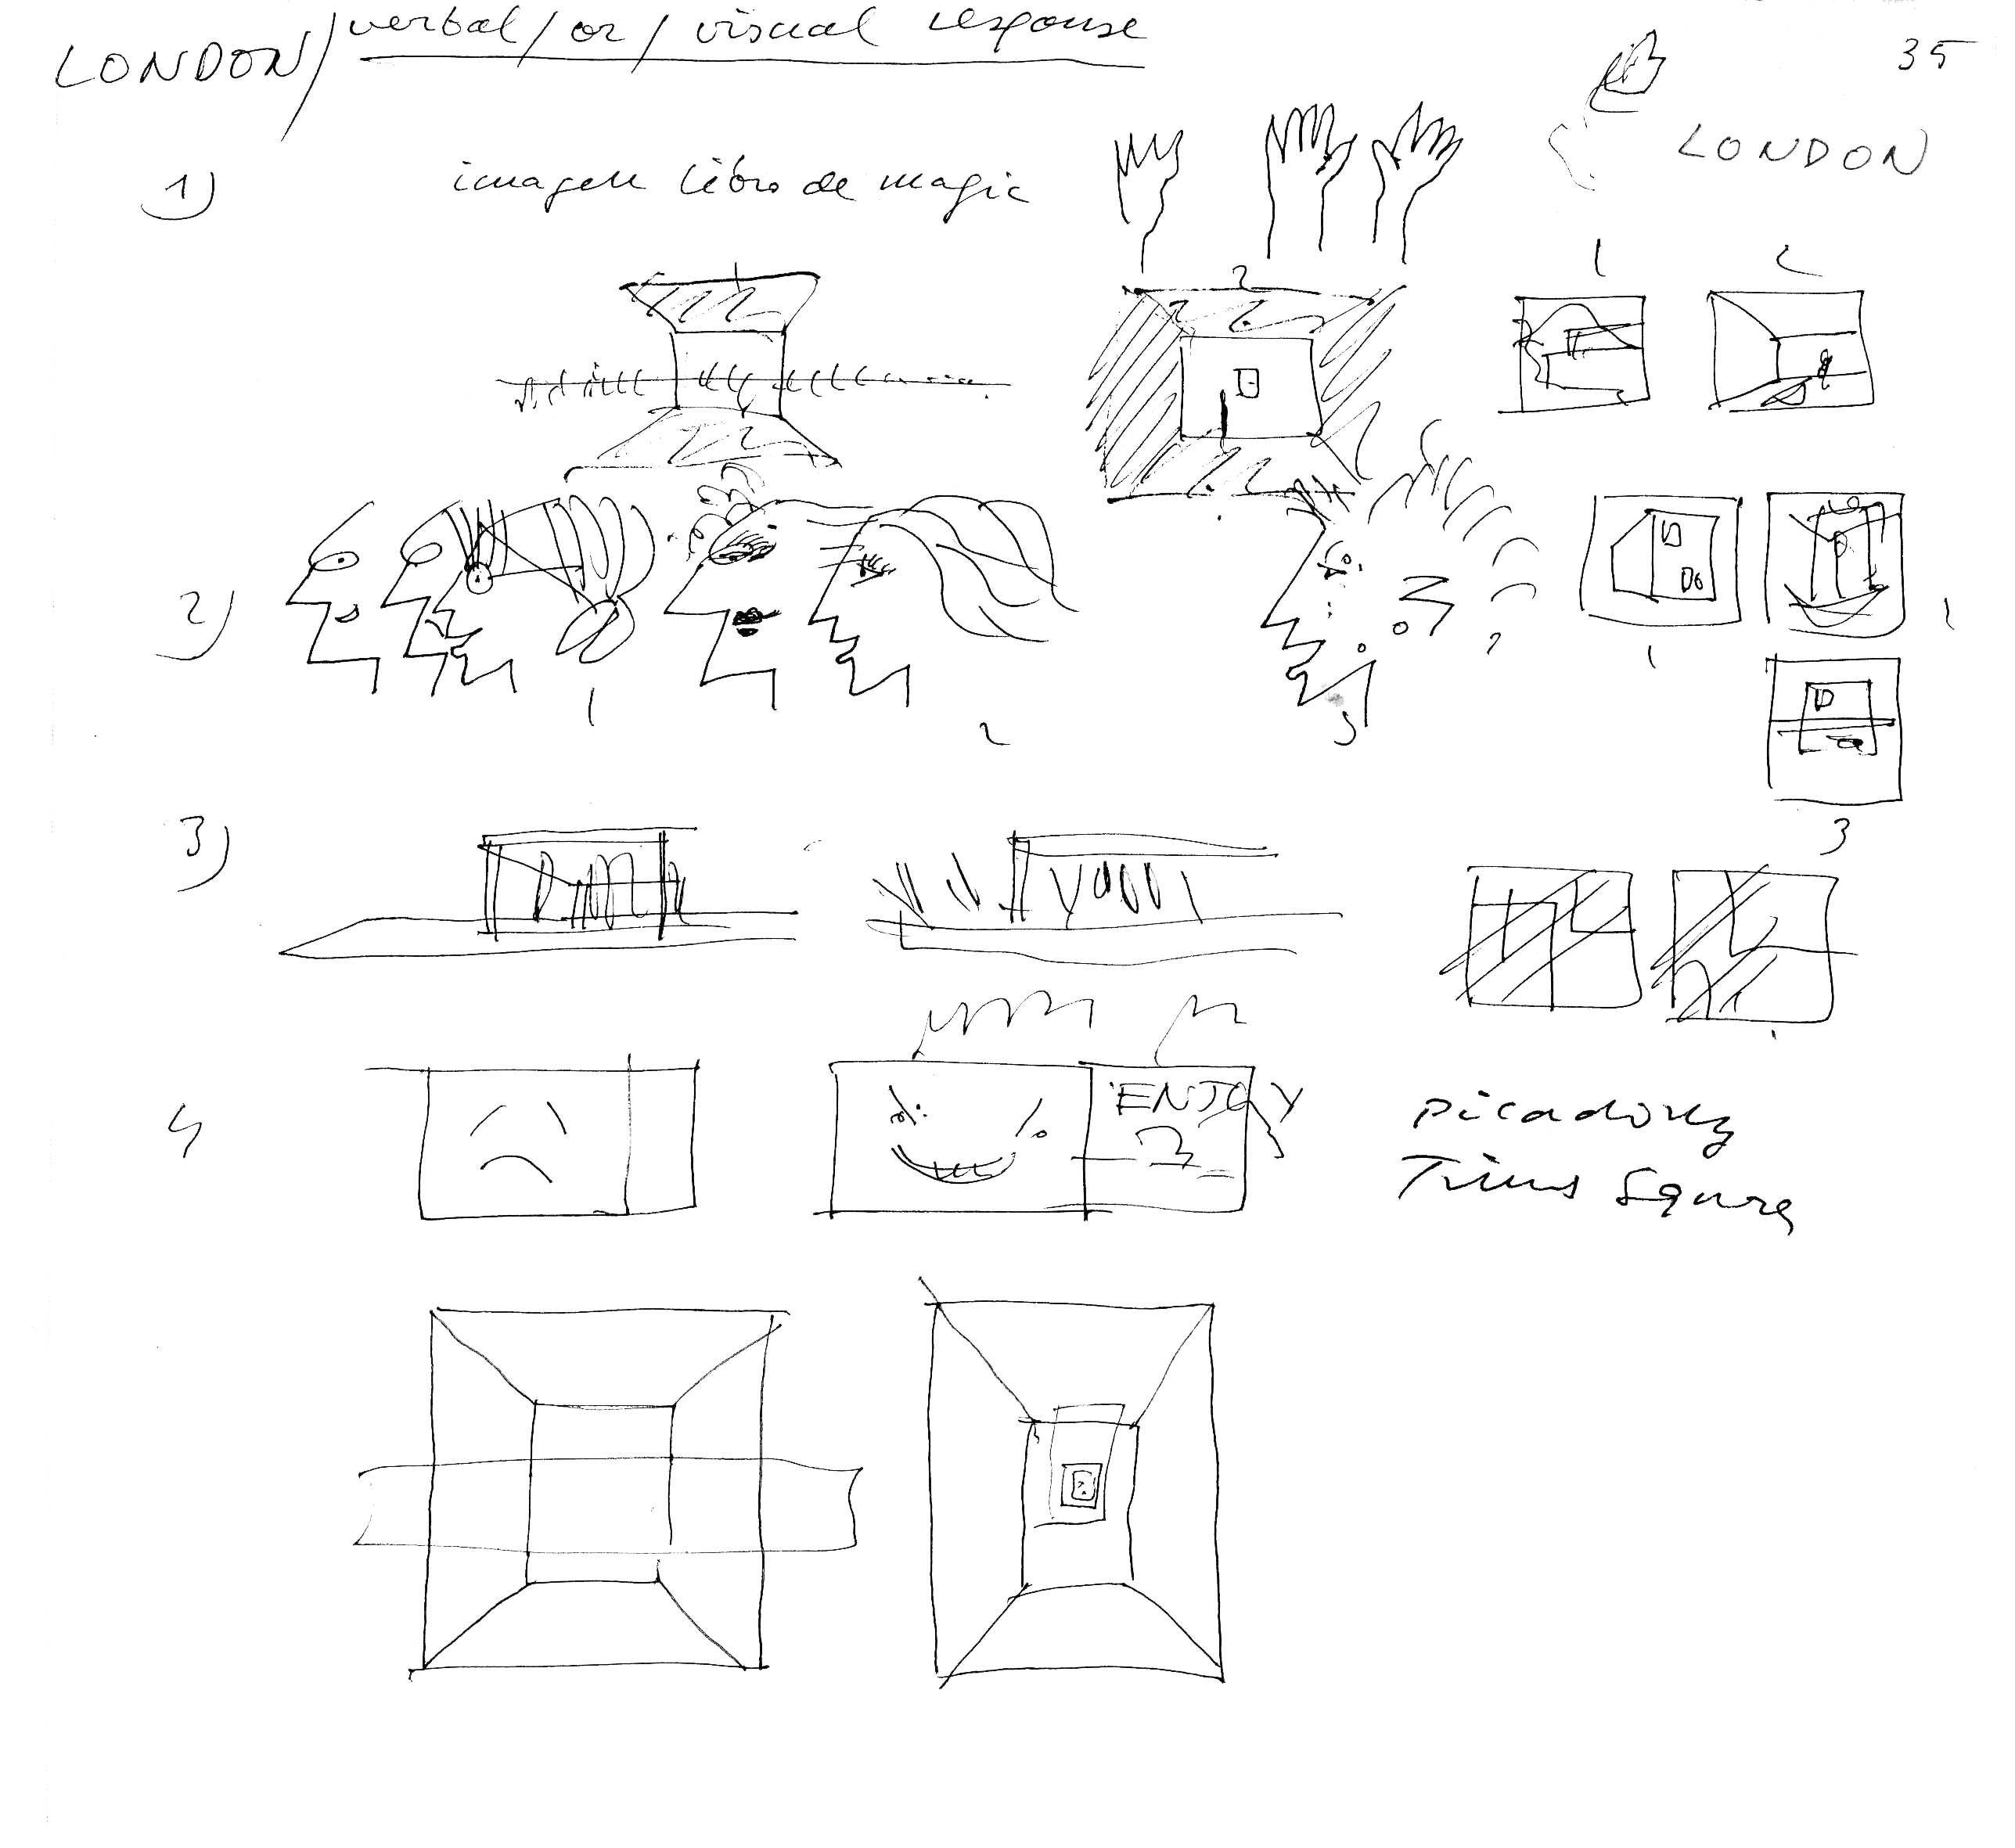 LONDON/ verbal / or / visual response
35
LONDON
1) imagen libro de magic
1 2
2
2)
1 2 3
1 1
3
3)
4
ENJOY
picadorey
Tims Square